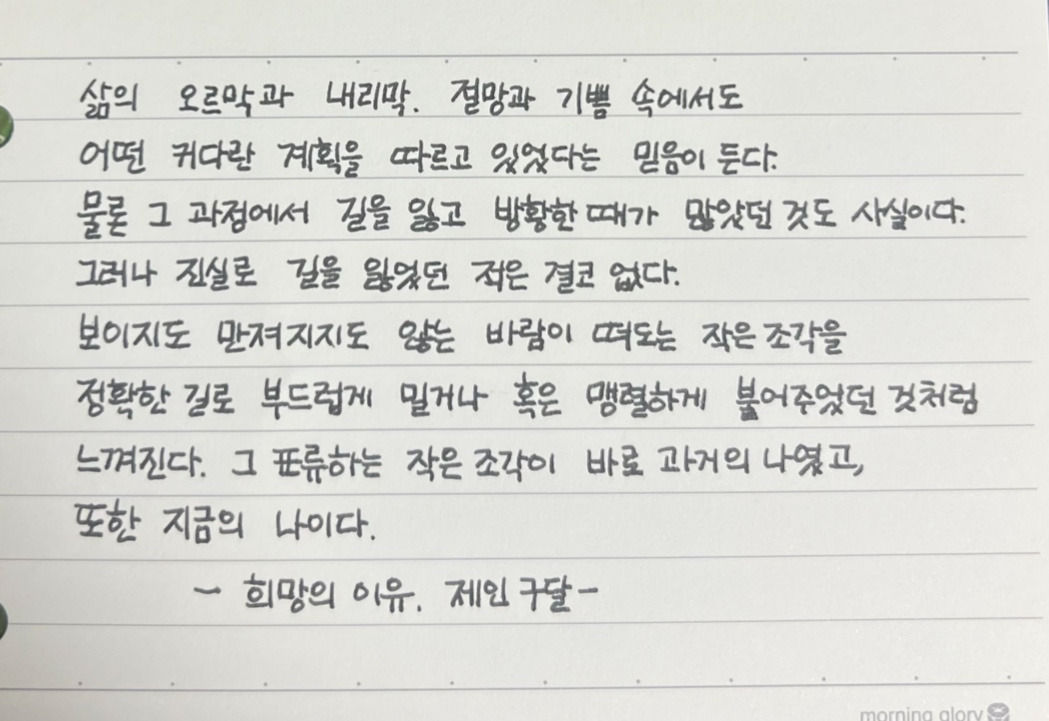 삶의 오르막과 내리막. 절망과 기쁨 속에서도
어떤 커다란 계획을 따르고 있었다는 믿음이 든다.
물론 그 과정에서 길을 잃고 방황한 때가 많았던 것도 사실이다.
그러나 진실로 길을 잃었던 적은 결코 없다.
보이지도 만져지지도 않는 바람이 떠도는 작은 조각을
정확한 길로 부드럽게 밀거나 혹은 맹렬하게 불어주었던 것처럼
느껴진다. 그 표류하는 작은 조각이 바로 과거의 나였고,
또한 지금의 나이다.
- 희망의 이유. 제인구달-
morning glory